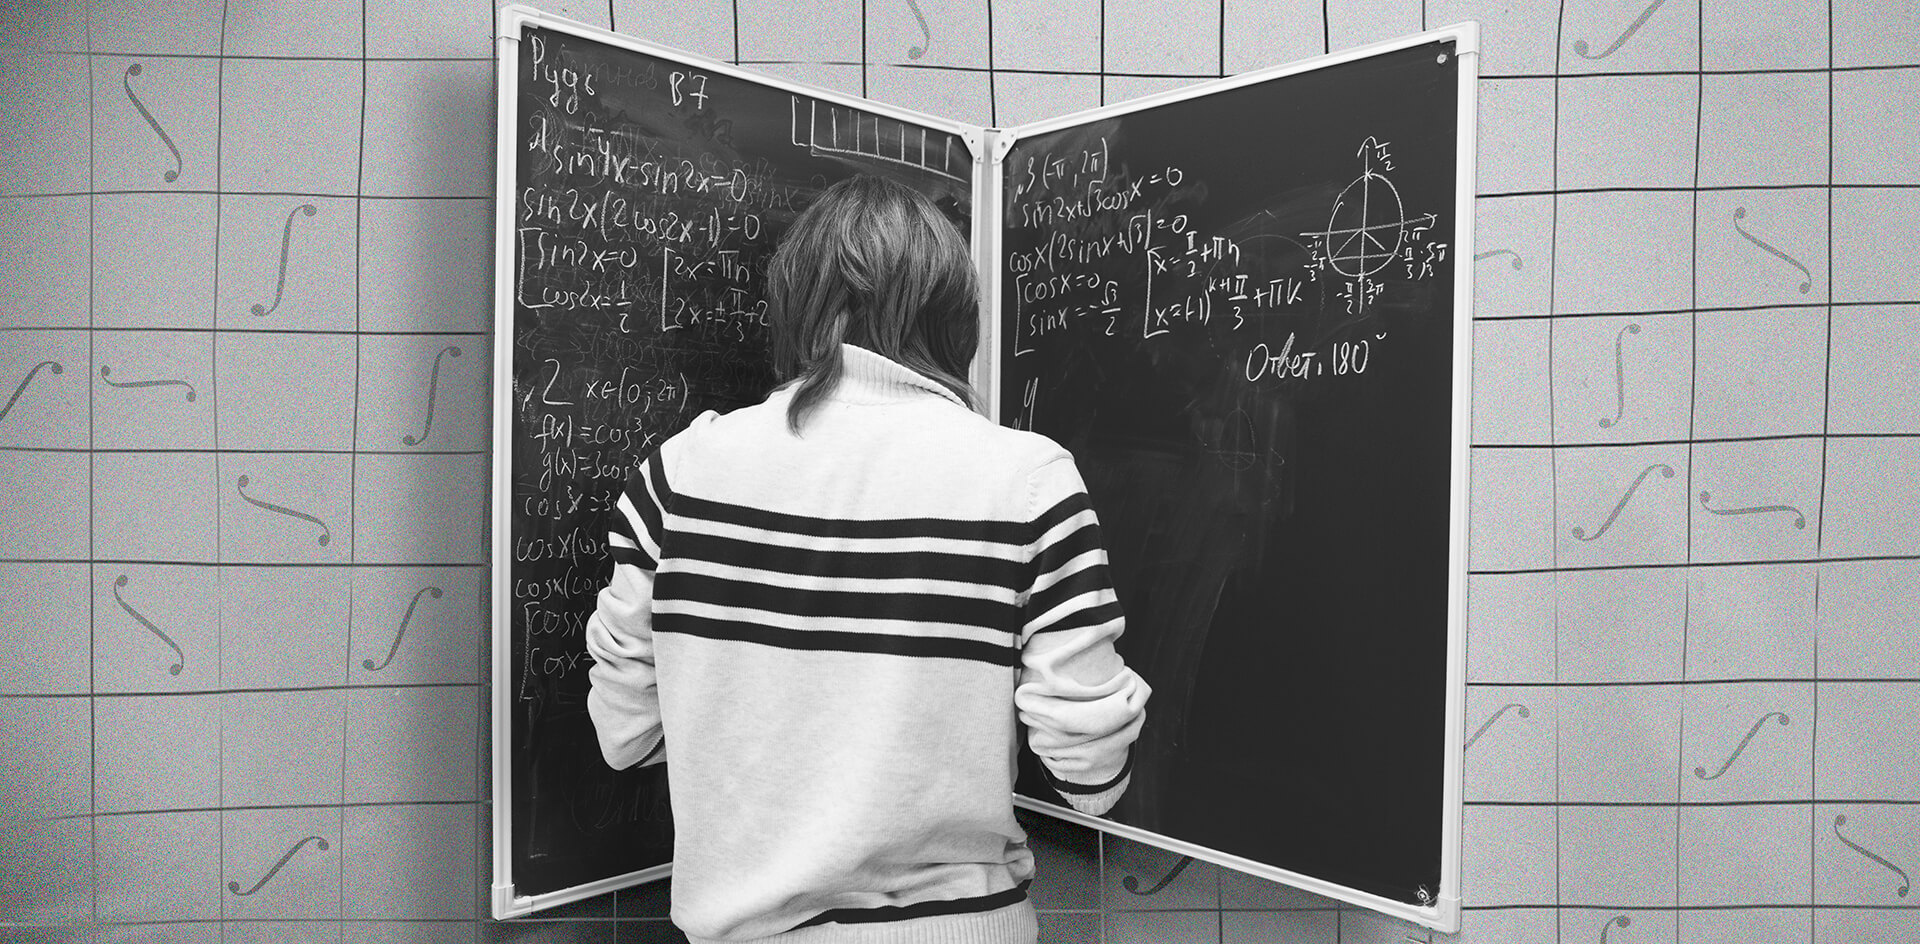 В7
sin4x-sin2x=0
sin2x(2cos2x-1)=0
sin2x=0
cos2x=1/2
2x=πn
2x=±π/3+2
2 x∈(0;2π)
f(x)=cos³x
g(x)=3cos²
cos³x=3
cosx(cos
cosx(cos
cosx
cosx=
3 (-π;2π)
sin2x+√3cosx=0
cosx(2sinx+√3)=0
cosx=0
sinx=-√3/2
x=π/2+πn
x=(-1)^(k+1)π/3+πk
π/2
2π
Ответ. 180°